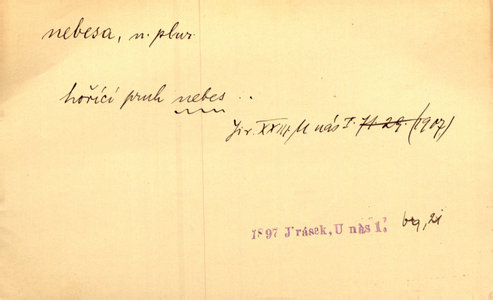 nebesa, n. plur.
hořící pruh nebes ..
Jir. XXIII, U nás I. (1907)
1897 Jirásek, U nás 1,